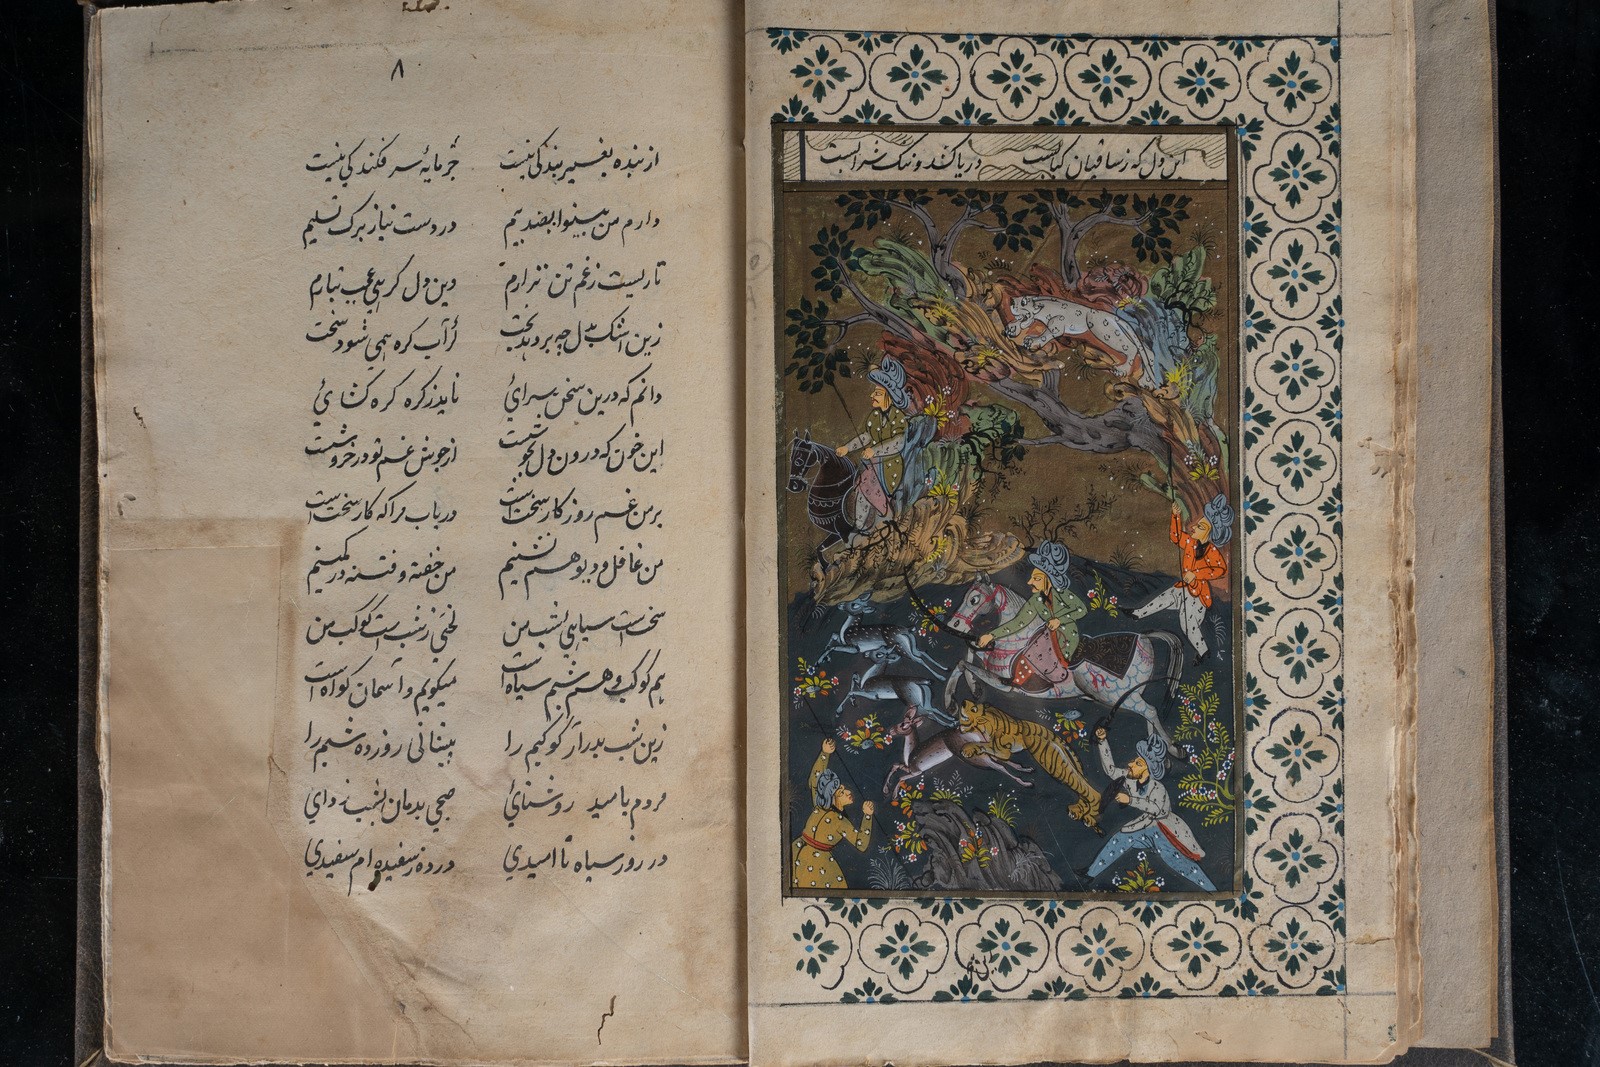 ۸
از بنده بغیر بندگی نیست جرمایهٔ سرفکندگی نیست
دارم من بینوا بصد بیم در دست نیاز برک تسلیم
تاریست ز غم تن نزارم وین دل کرهی عجب بتارم
زین اشک بدل چه برد بخت کز آب کره همی شود سخت
دانم که درین سخن سرائی ناید ز کره کره کشائی
این خون که درون دل بجوشست از جوش غم تو در خروشست
بر من غم روزکار سختست دریاب مرا که کار سختست
من غافل و دیو همنشینم من خفته و فتنه در کمینم
سختست سیاهی شب من لختی ز شبست کوکب من
هم کوکب و هم شبم سیاهست میکویم و آسمان کواهست
زین شب بدر آر کوکبم را بینائی روز ده شبم را
مردم بامید روشنائی صبحی بدمان شب
در روز سیاه ناامیدی در ده ز سفیده ام سفیدی
این دل که ز ساقیان کبابست دریا کند و نمک شرابست